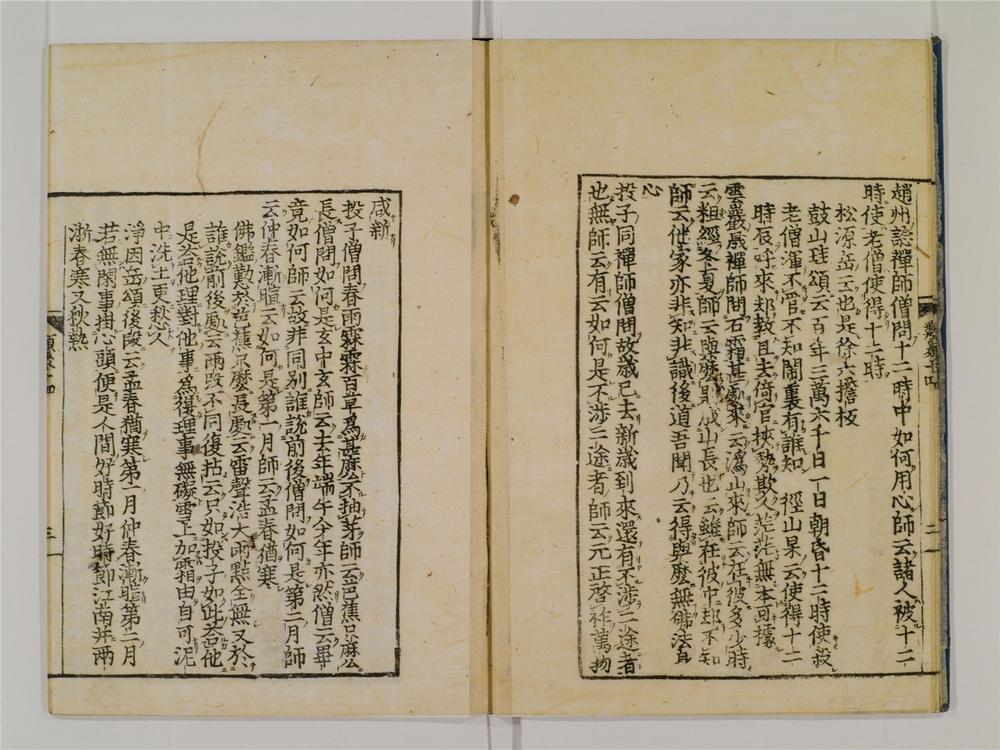 趙州諗禪師僧問十二時中如何用心師云諸人被十二
時使老僧使得十二時
松源岳云也是徐六擔板
鼓山珪頌云百年三萬六千日一日朝昏十二時使殺
老僧渾不管不知閙裏有誰知　徑山杲云使得十二
時辰呼來却敎且去倚官挾勢欺人茫茫無本可據
雲巖晟禪師問石霜甚處來云潙山來師云在彼多少時
云粗經冬夏師云與麼則成山長也云雖在彼中却不知
師云他家亦非知非識後道吾聞乃云得與麼無佛法身
心
投子同禪師僧問故歲已去新歲到來還有不涉二途者
也無師云有云如何是不涉二途者師云元正啓祚萬物
咸新
投子僧問春雨霖霖百草爲甚麼不抽芽師云芭蕉只麽
長僧問如何是玄中玄師云去年端午今年亦然僧云畢
竟如何師云故非同別誰說前後僧問如何是第二月師
云仲春漸暄云如何是第一月師云孟春猶寒
佛鑑懃於芭蕉只麼長處云雷聲浩大雨點全無又於
誰說前後處云兩段不同復拈云只如投子如此荅他
是荅他理對他事爲復理事無礙雪上加霜由自可泥
中洗土更愁人
淨因岳頌後段云孟春猶寒第一月仲春漸暄第二月
若無閑事掛心頭便是人間好時節好時節江南并兩
浙春寒又秋熱
二
三